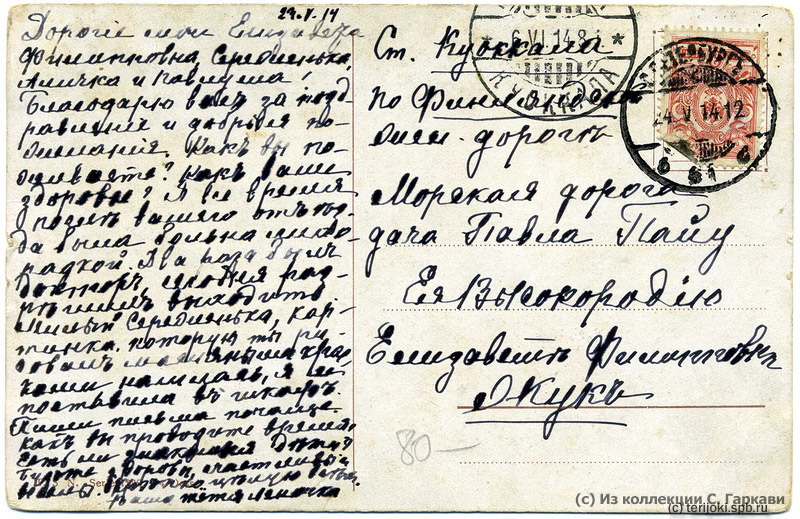 24.V.14
Дорогіе мои Елизавета
Филипповна, Сереженька,
Аличка и Павлуша!
Благодарю васъ за позд-
равленіе и добрыя по-
желанія. Какъ вы по-
живаете? Какъ ваши
здоровье? Я все время
послѣ вашего отъѣз-
да была больна лихо-
радкой. Два раза былъ
докторъ, сегодня раз-
рѣшилъ выходить.
Милый Сереженька, кар-
тинка, которую ты ри-
совалъ масляными крас-
ками нашлась, я ее
поставила въ шкафъ.
Пиши письма почаще.
Какъ вы проводите время,
есть ли знакомыя
Будьте здоровы, счастливы
цѣлую
ваша тётя Леночка
Ст. Куоккала
по Финляндск.
жел. дорогѣ
Морская дорога
дача Павла Пайу
Ея Высокородію
Елизаветѣ Филипповнѣ
Жукъ
80-
6.VI.14.8
KУОККАЛА
С.ПЕТЕРБУРГЪ
24.V.14.12
(c) Из коллекции С. Гаркави
(c) terijoki.spb.ru